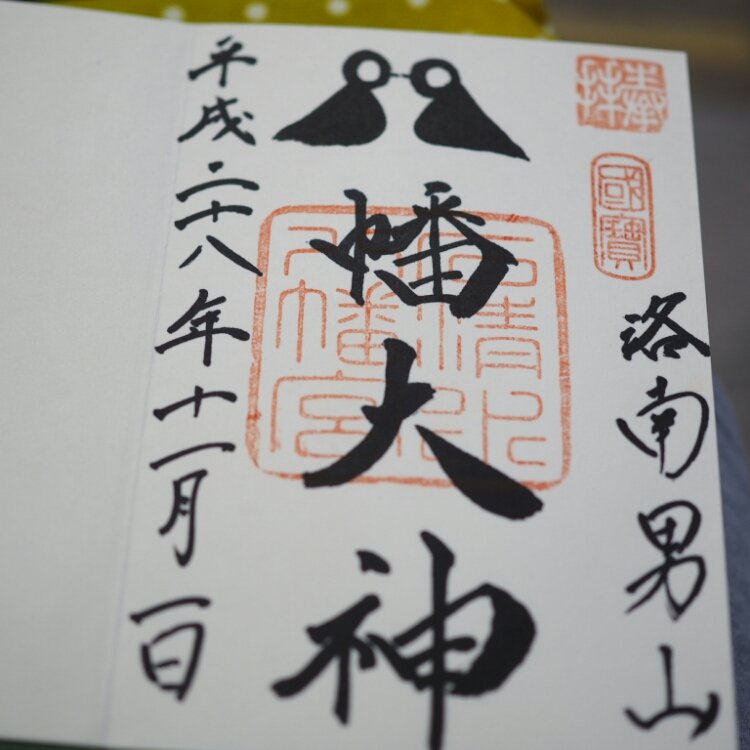 奉拝
國寶
洛南男山
八幡大神
石清水八幡宮
平成二十八年十一月一日